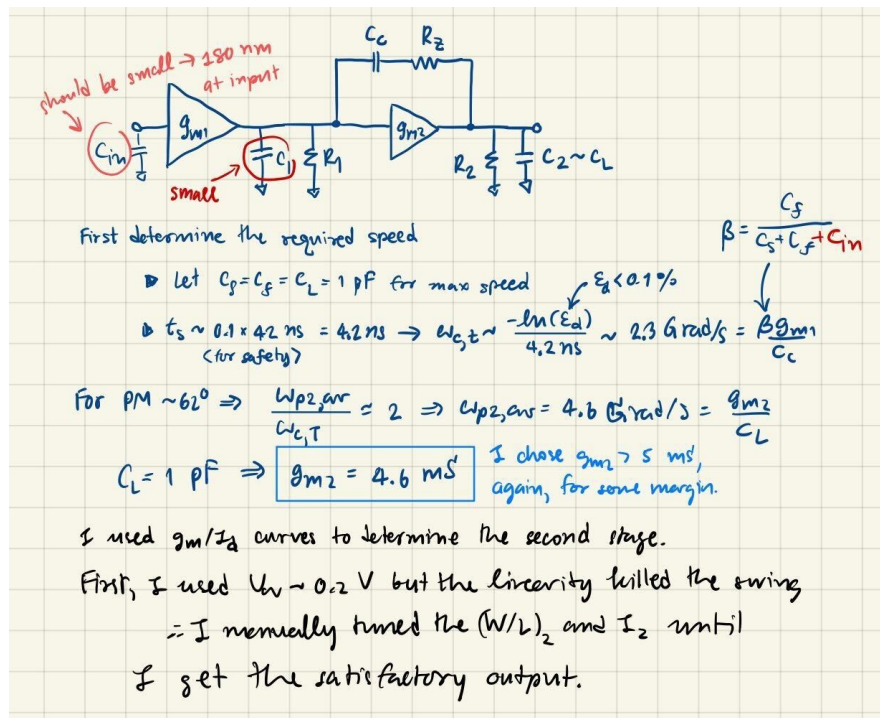 Cc Rz
should be small → 180 nm
at input
Cin gm1 C1 R1 gm2 R2 C2 ~ CL
small
First determine the required speed
β = Cf / (Cs + Cf + Cin)
▶ Let Cs = Cf = CL = 1 pF for max speed
εd < 0.1%
▶ ts ~ 0.1 × 42 ns = 4.2 ns → ωc,t ~ -ln(εd) / 4.2 ns ~ 2.3 Grad/s = βgm1 / Cc
(for safety)
For PM ~ 62° ⇒ ωp2, / ωc,T = 2 ⇒ ωp2, = 4.6 Grad/s = gm2 / CL
CL = 1 pF ⇒ gm2 = 4.6 mS
I chose gm2 > 5 mS,
again, for some margin.
I used gm/Id curves to determine the second stage.
First, I used Uov ~ 0.2 V but the linearity killed the swing
∴ I manually tuned the (W/L)2 and I2 until
I get the satisfactory output.